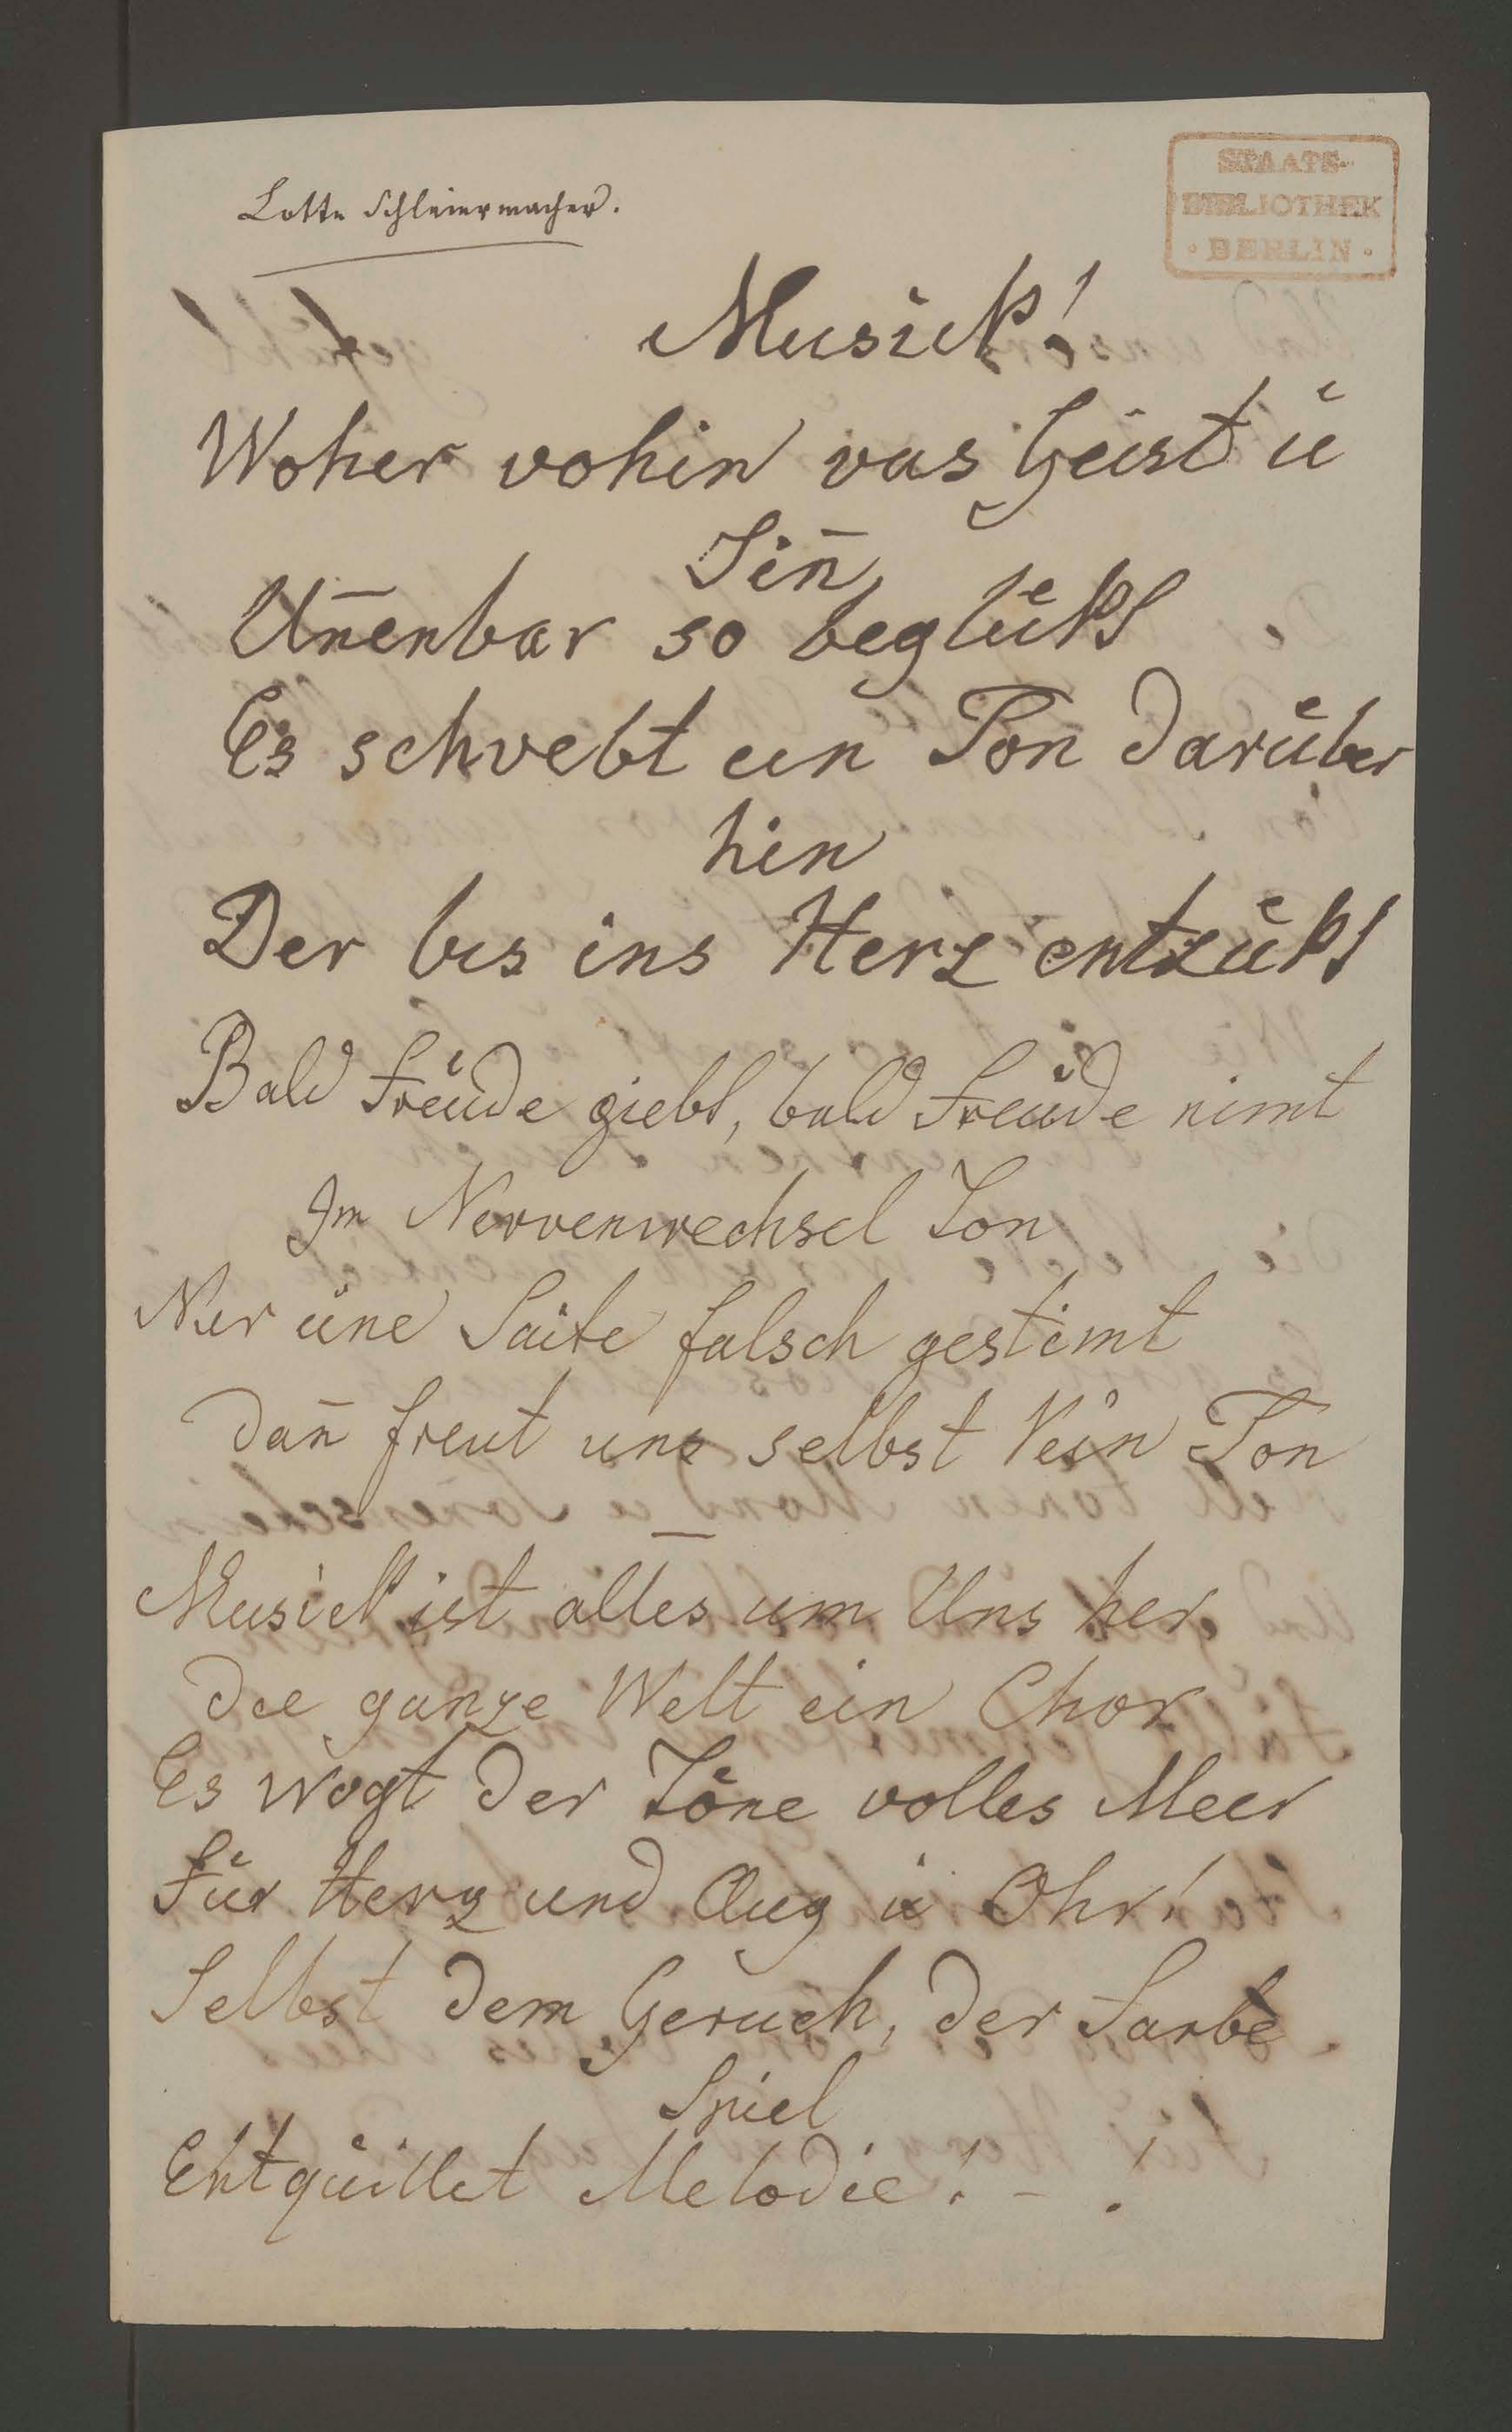 Lotte Schleiermacher.
STAATS-
BIBLIOTHEK
· BERLIN ·
Musick!
Woher wohin was Geist u
Sin̄
Un̄enbar so beglükt
Es schwebt ein Ton darüber
hin
Der bis ins Herz entzükt
Bald Freude giebt, bald Freude nimt
Im Nervenwechsel Ton
Nur eine Saite falsch gestimt
dan̄ freut uns selbst kein Ton
—
Musick ist alles um Uns her
die ganze Welt ein Chor
Es wogt der Töne volles Meer
Für Herz und Aug u Ohr!
Selbst dem Geruch, der Farbe
Spiel
Entquillet Melodie! - !